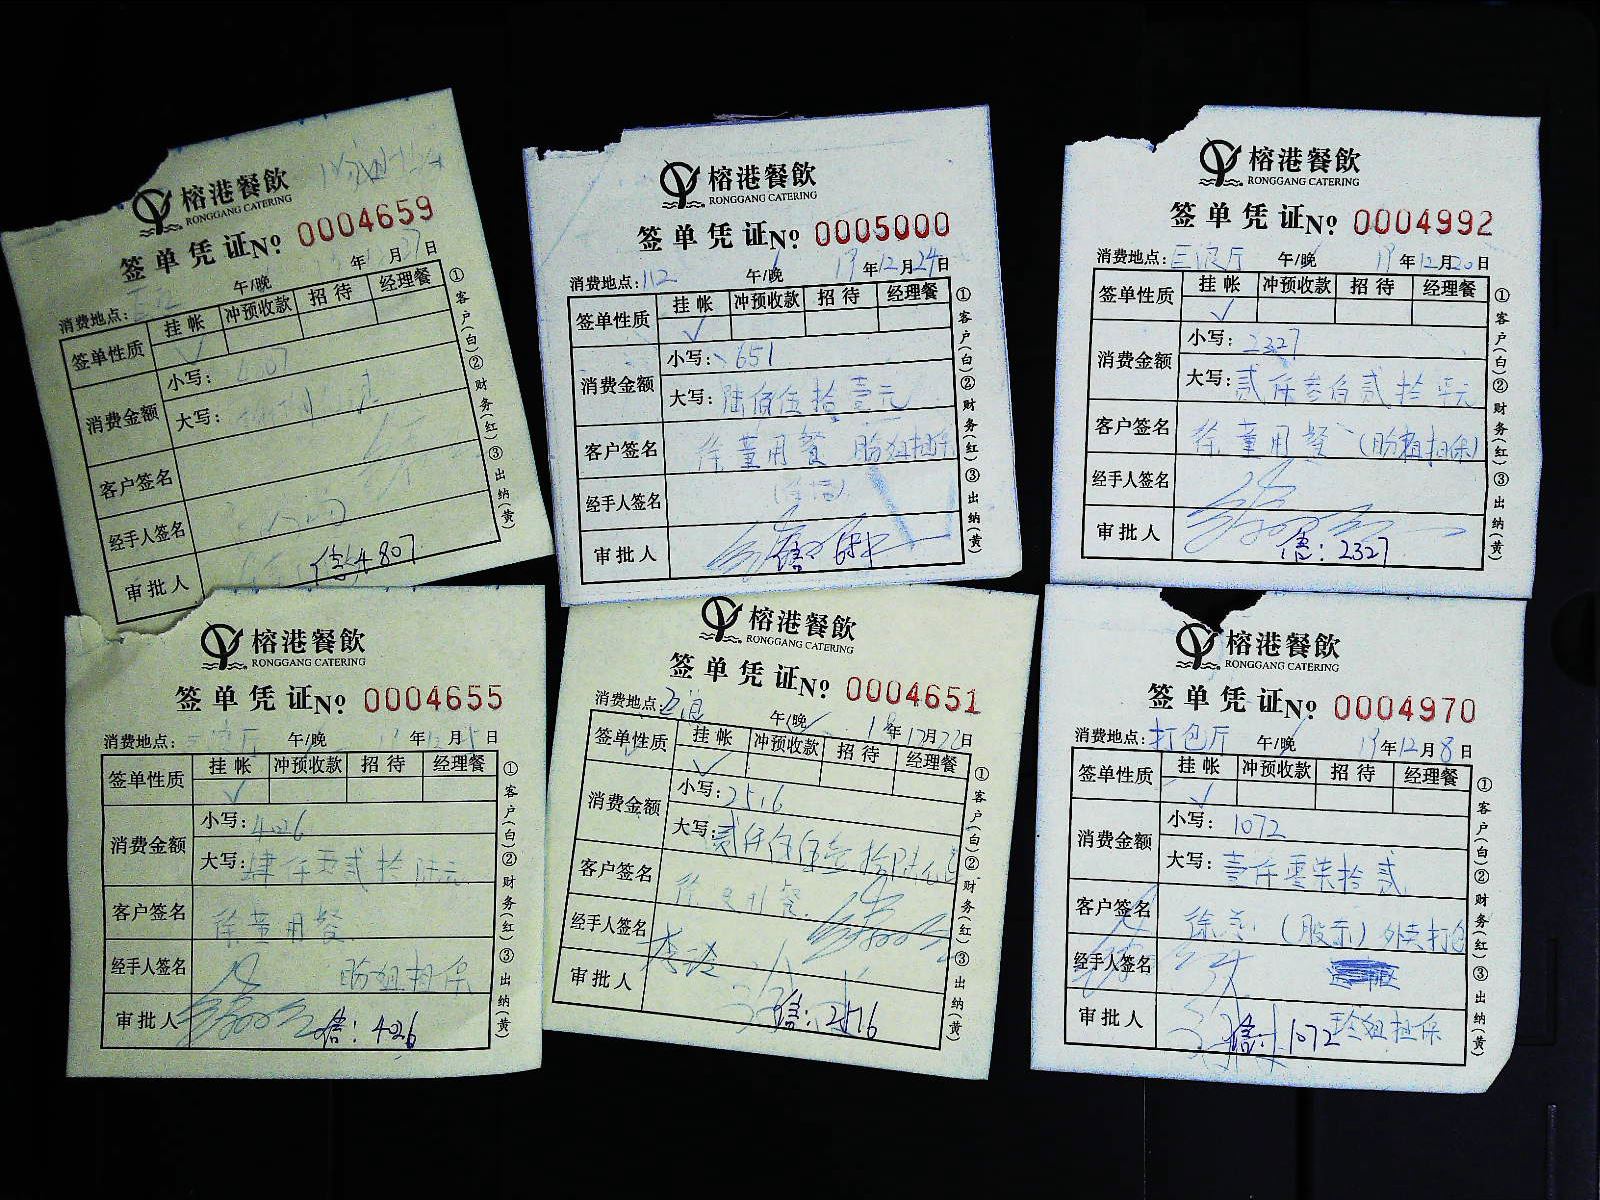 榕港餐飲
RONGGANG CATERING
签单凭证 No 0004659
消费地点: 午/晚 年 月27日
签单性质 挂帐 冲预收款 招待 经理餐
✓
消费金额 小写: 4807
大写:
客户签名
经手人签名
审批人 4807
①客户(白)②财务(红)③出纳(黄)
榕港餐飲
RONGGANG CATERING
签单凭证 No 0005000
消费地点: 112 午/晚 19年12月24日
签单性质 挂帐 冲预收款 招待 经理餐
✓
消费金额 小写: 651
大写: 陆佰伍拾壹元
客户签名 徐董用餐 盼姐担保
经手人签名
审批人 651
①客户(白)②财务(红)③出纳(黄)
榕港餐飲
RONGGANG CATERING
签单凭证 No 0004992
消费地点: 午/晚 19年12月20日
签单性质 挂帐 冲预收款 招待 经理餐
✓
消费金额 小写: 2327
大写: 贰仟叁佰贰拾柒元
客户签名 徐董用餐 (盼姐担保)
经手人签名
审批人 2327
①客户(白)②财务(红)③出纳(黄)
榕港餐飲
RONGGANG CATERING
签单凭证 No 0004655
消费地点: 厅 午/晚 19年12月 日
签单性质 挂帐 冲预收款 招待 经理餐
✓
消费金额 小写: 4026
大写: 肆仟零贰拾陆元
客户签名 徐董用餐
经手人签名 盼姐担保
审批人 4026
①客户(白)②财务(红)③出纳(黄)
榕港餐飲
RONGGANG CATERING
签单凭证 No 0004651
消费地点: 午/晚 年12月22日
签单性质 挂帐 冲预收款 招待 经理餐
✓
消费金额 小写: 2516
大写: 贰仟伍佰壹拾陆元
客户签名 徐 用餐
经手人签名
审批人 2516
①客户(白)②财务(红)③出纳(黄)
榕港餐飲
RONGGANG CATERING
签单凭证 No 0004970
消费地点: 打包厅 午/晚 19年12月8日
签单性质 挂帐 冲预收款 招待 经理餐
✓
消费金额 小写: 1072
大写: 壹仟零柒拾贰
客户签名 徐 (股东) 外卖打包
经手人签名
审批人 1072 姐担保
①客户(白)②财务(红)③出纳(黄)